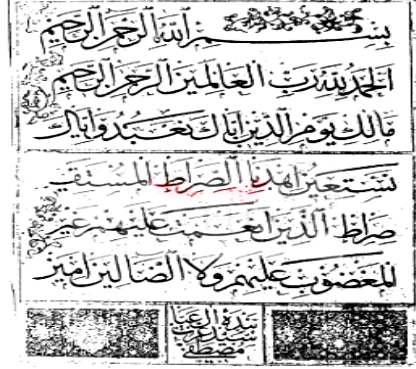 بسم الله الرحمن الرحيم
الحمد لله رب العالمين الرحمن الرحيم
مالك يوم الدين اياك نعبد واياك
نستعين اهدنا الصراط المستقيم
صراط الذين انعمت عليهم غير
المغضوب عليهم ولا الضالين امين